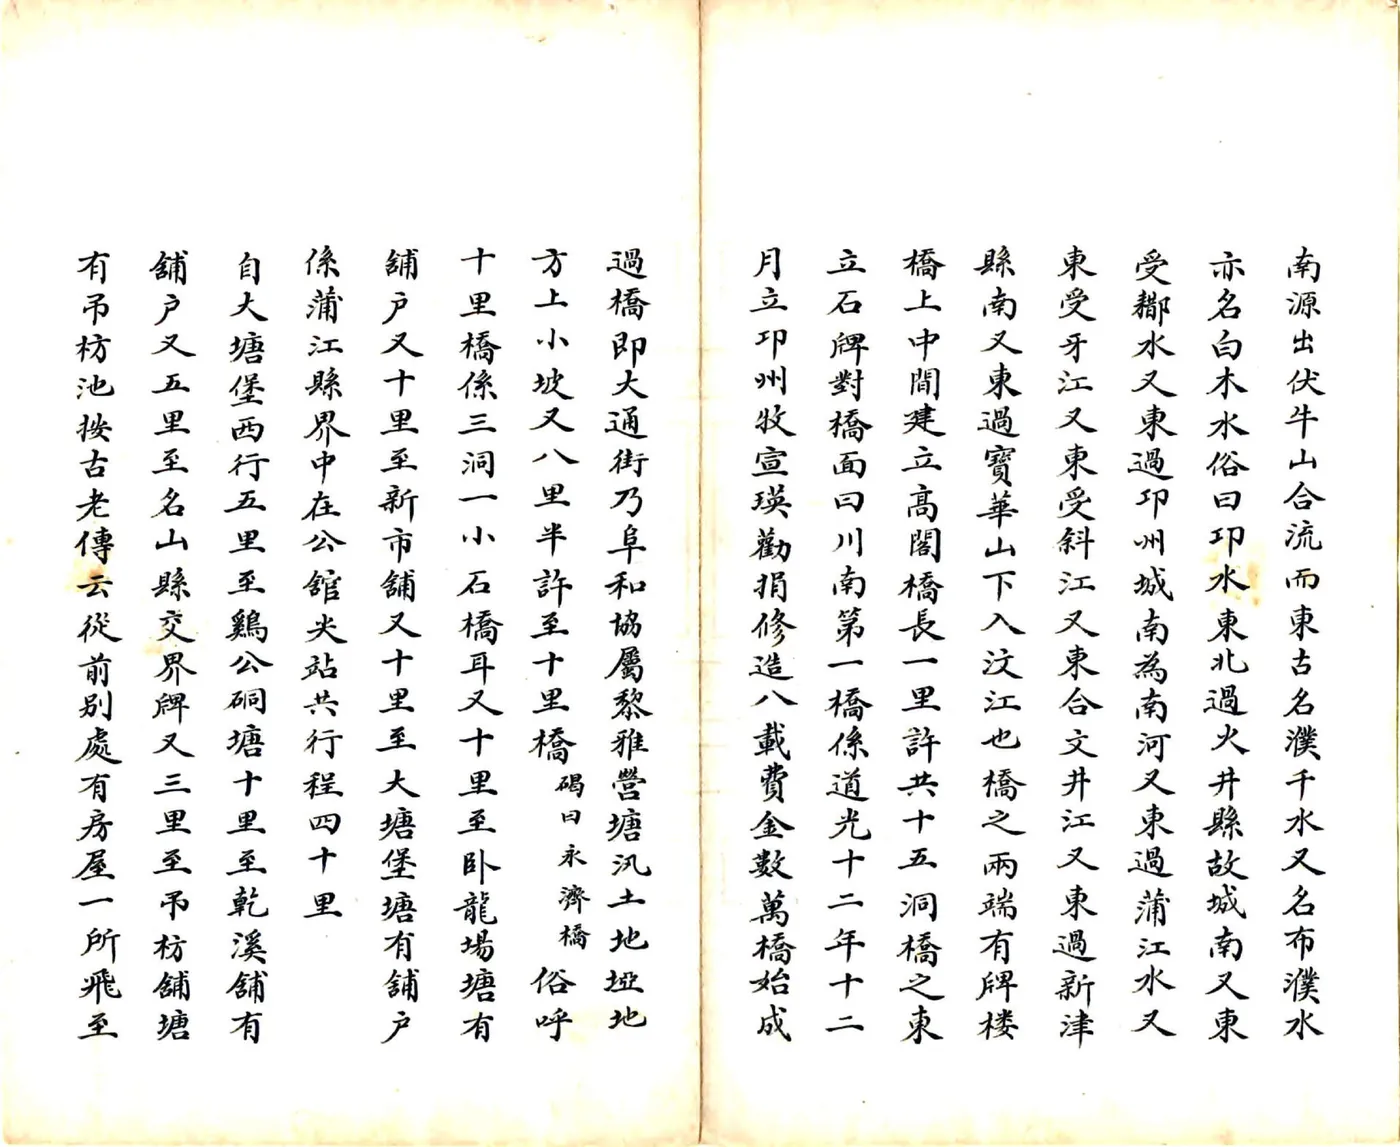 南源出伏牛山合流而東古名濮千水又名布濮水
亦名白木水俗曰邛水東北過火井縣故城南又東
受𨞕水又東過邛州城南為南河又東過蒲江水又
東受牙江又東受斜江又東合文井江又東過新津
縣南又東過寶華山下入汶江也橋之兩端有牌楼
橋上中間建立高閣橋長一里許共十五洞橋之東
立石牌對橋面曰川南第一橋係道光十二年十二
月立邛州牧宣瑛勸捐修造八載費金數萬橋始成
過橋即大通街乃阜和協屬黎雅營塘汛土地埡地
方上小坡又八里半許至十里橋碣曰永濟橋俗呼
十里橋係三洞一小石橋耳又十里至卧龍場塘有
舖户又十里至新市舖又十里至大塘堡塘有舖户
係蒲江縣界中在公舘尖站共行程四十里
自大塘堡西行五里至鷄公硐塘十里至乾溪舖有
舖户又五里至名山縣交界牌又三里至吊枋舖塘
有吊枋池按古老傳云從前別處有房屋一所飛至